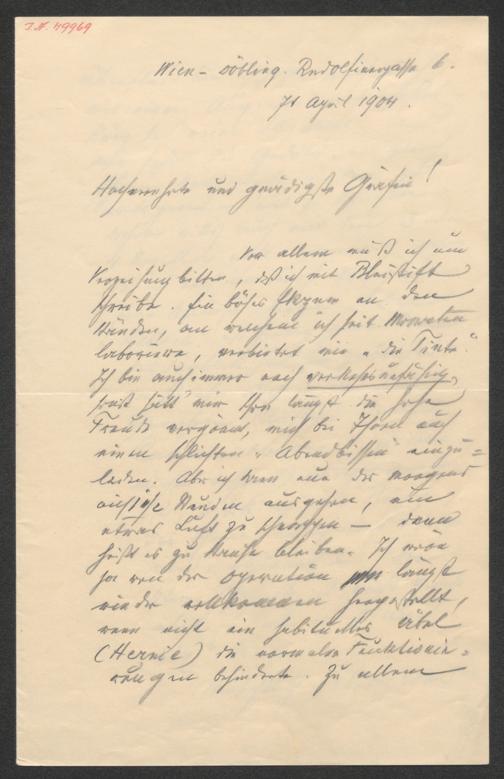 I.N. 49969
Wien – Döbling. Rudolfinergasse 6.
7t April 1904.
Hochverehrte und gnädigste Gräfin!
Vor allem muß ich um
Verzeihung bitten, daß ich mit Bleistift
schreibe. Ein böses Ekzem an den
Händen, an welchem ich seit Monaten
laborire, verbietet mir „die Tinte“.
Ich bin auch immer noch verkehrsunfähig,
sonst hätt' mir schon längst die hohe
Freude vergönnt, mich bei Ihnen auf
einen schlichten „Abendbissen“ einzu=
laden. Aber ich kann nur des morgens
ausgehen, um
etwas Luft zu schöpfen – dann
heißt es zu Hause bleiben. Ich wäre
ja von der Operation längst
wieder vollkommen hergestellt,
wenn nicht ein habituelles Übel
(Hernie) die normalen Funktionie=
rungen behinderte. Zu allem